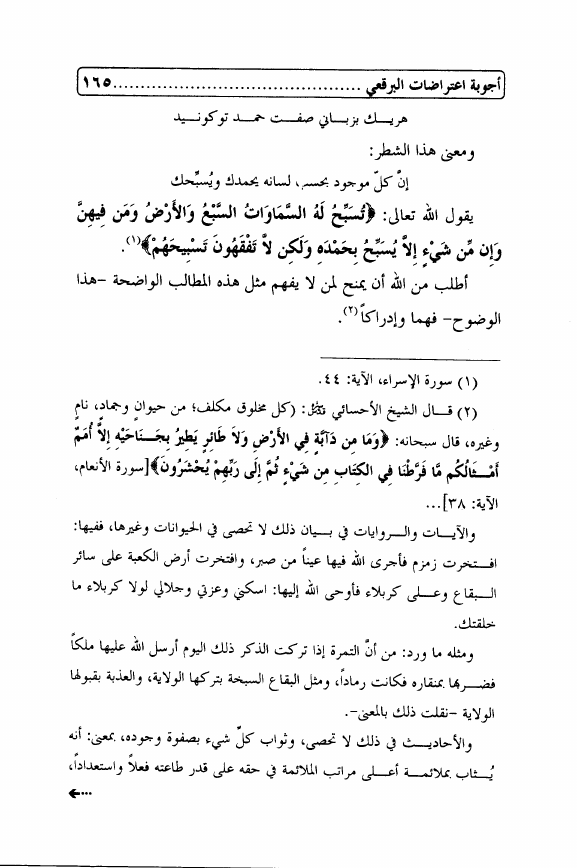 أجوبة اعتراضات البرقعي ............................................ ١٦٥
هريك بزباني صفت حمد توكونيد
ومعنى هذا الشطر:
إنّ كلّ موجود بحسب لسانه يحمدك ويُسبِّحك
يقول الله تعالى: ﴿تُسَبِّحُ لَهُ السَّمَاوَاتُ السَّبْعُ وَالأَرْضُ وَمَن فِيهِنَّ
وَإِن مِّن شَيْءٍ إِلاَّ يُسَبِّحُ بِحَمْدَهِ وَلَكِن لاَّ تَفْقَهُونَ تَسْبِيحَهُمْ﴾(١).
أطلب من الله أن يمنح لمن لا يفهم مثل هذه المطالب الواضحة -هذا
الوضوح- فهما وإدراكاً(٢).
(١) سورة الإسراء، الآية: ٤٤.
(٢) قال الشيخ الأحسائي قدس سره: (كل مخلوق مكلف؛ من حيوانٍ وجمادٍ، نامٍ
وغيره، قال سبحانه: ﴿وَمَا مِن دَآبَّةٍ فِي الأَرْضِ وَلاَ طَائِرٍ يَطِيرُ بِجَنَاحَيْهِ إِلاَّ أُمَمٌ
أَمْثَالُكُم مَّا فَرَّطْنَا فِي الكِتَابِ مِن شَيْءٍ ثُمَّ إِلَى رَبِّهِمْ يُحْشَرُونَ﴾[سورة الأنعام،
الآية: ٣٨]...
والآيات والروايات في بيان ذلك لا تحصى في الحيوانات وغيرها، ففيها:
افتخرت زمزم فأجرى الله فيها عيناً من صبر، وافتخرت أرض الكعبة على سائر
البقاع وعلى كربلاء فأوحى الله إليها: اسكني وعزتي وجلالي لولا كربلاء ما
خلقتك.
ومثله ما ورد: من أنَّ التمرة إذا تركت الذكر ذلك اليوم أرسل الله عليها ملكاً
فضربها بمنقاره فكانت رماداً، ومثل البقاع السبخة بتركها الولاية، والعذبة بقبولها
الولاية -نقلت ذلك بالمعنى-.
والأحاديث في ذلك لا تحصى، وثواب كلّ شيء بصفوة وجوده، بمعنى: أنه
يُثاب بملائمة أعلى مراتب الملائمة في حقه على قدر طاعته فعلاً واستعداداً،
...←